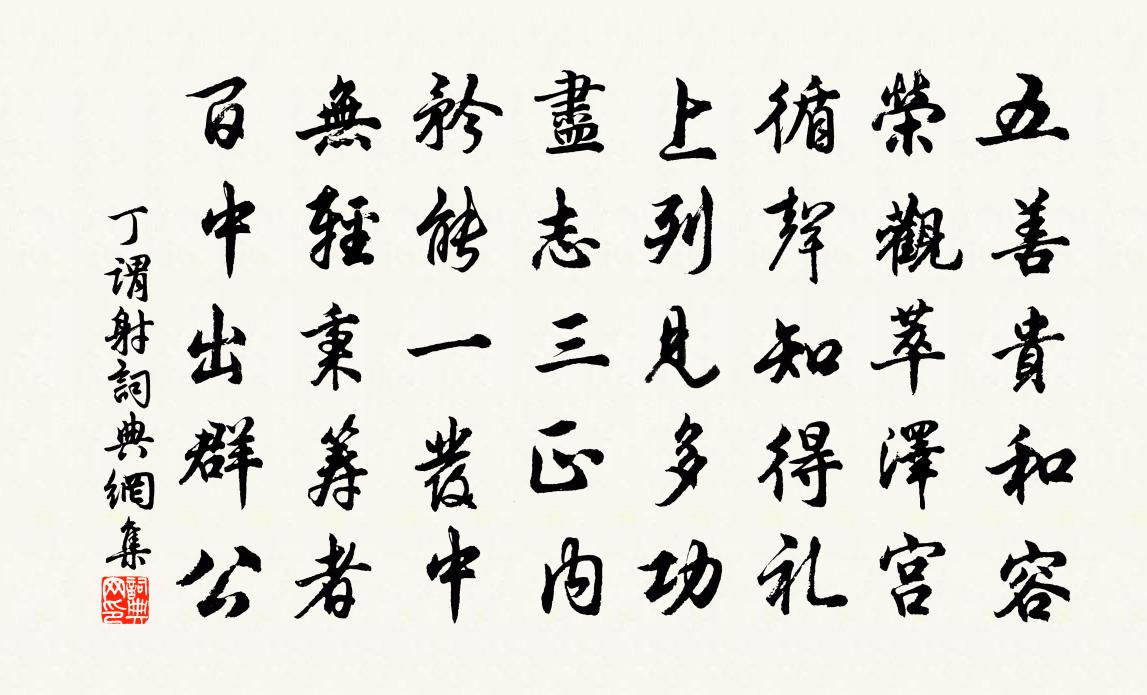 五善貴和容
榮觀萃澤宮
循聲知得礼
上列見多功
盡志三正内
矜能一發中
無輕秉筭者
百中出群公
丁謂射詞典網集
詞典网印